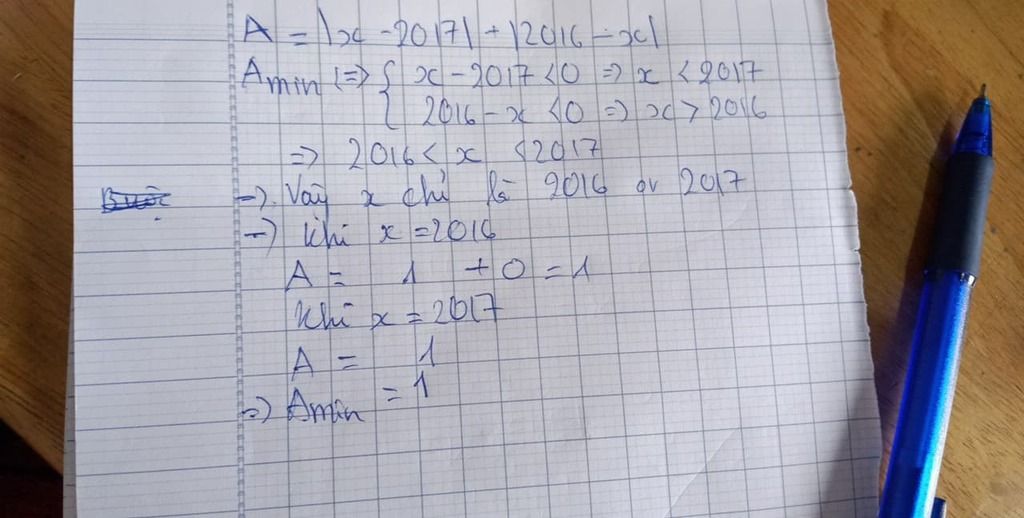 A = |x - 2017| + |2016 - x|
Amin <=> { x - 2017 < 0 => x < 2017
2016 - x < 0 => x > 2016
=> 2016 < x < 2017
=> Vậy x chỉ là 2016 or 2017
=> Khi x = 2016
A = 1 + 0 = 1
Khi x = 2017
A = 1
=> Amin = 1